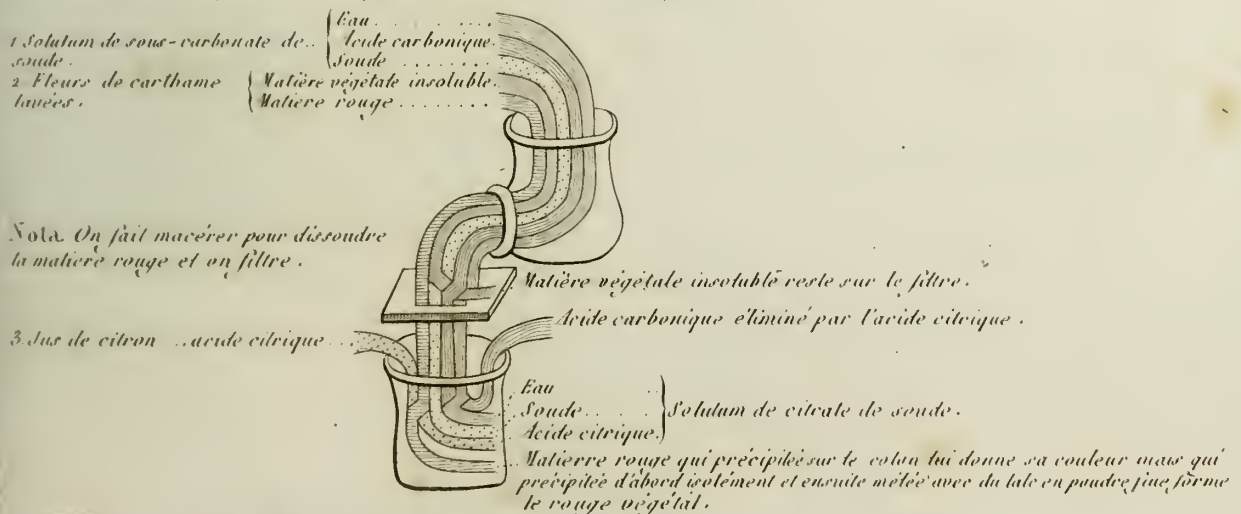 1 Solutum de sous-carbonate de .. soude.
Eau . . . . . . .
Acide carbonique.
Soude . . . . . . .
2 Fleurs de carthame lavées.
Matière végétale insoluble.
Matière rouge . . . . . . . .
Nota. On fait macérer pour dissoudre
la matière rouge et on filtre.
Matière végétale insoluble reste sur le filtre.
Acide carbonique éliminé par l'acide citrique.
3. Jus de citron .. acide citrique ...
Eau
Soude . . .
Acide citrique.
Solutum de citrate de soude.
Matierre rouge qui précipitée sur le coton lui donne sa couleur mais qui
précipitée d'abord isolément et ensuite mêlée avec du talc en poudre fine forme
le rouge végétal.